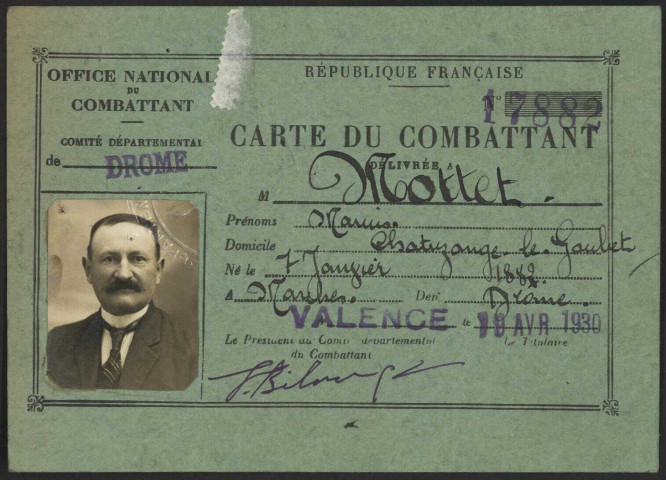 OFFICE NATIONAL
DU
COMBATTANT
COMITÉ DÉPARTEMENTAL
de DROME
RÉPUBLIQUE FRANÇAISE
No 17882
CARTE DU COMBATTANT
DÉLIVRÉE A
M Mottet.
Prénoms Marius.
Domicile Chatuzange-le-Goubet
Né le 7 Janvier 1882.
A Dept Drome.
VALENCE le 18 AVR 1930
Le Président du Comité départemental
du Combattant
Le Titulaire